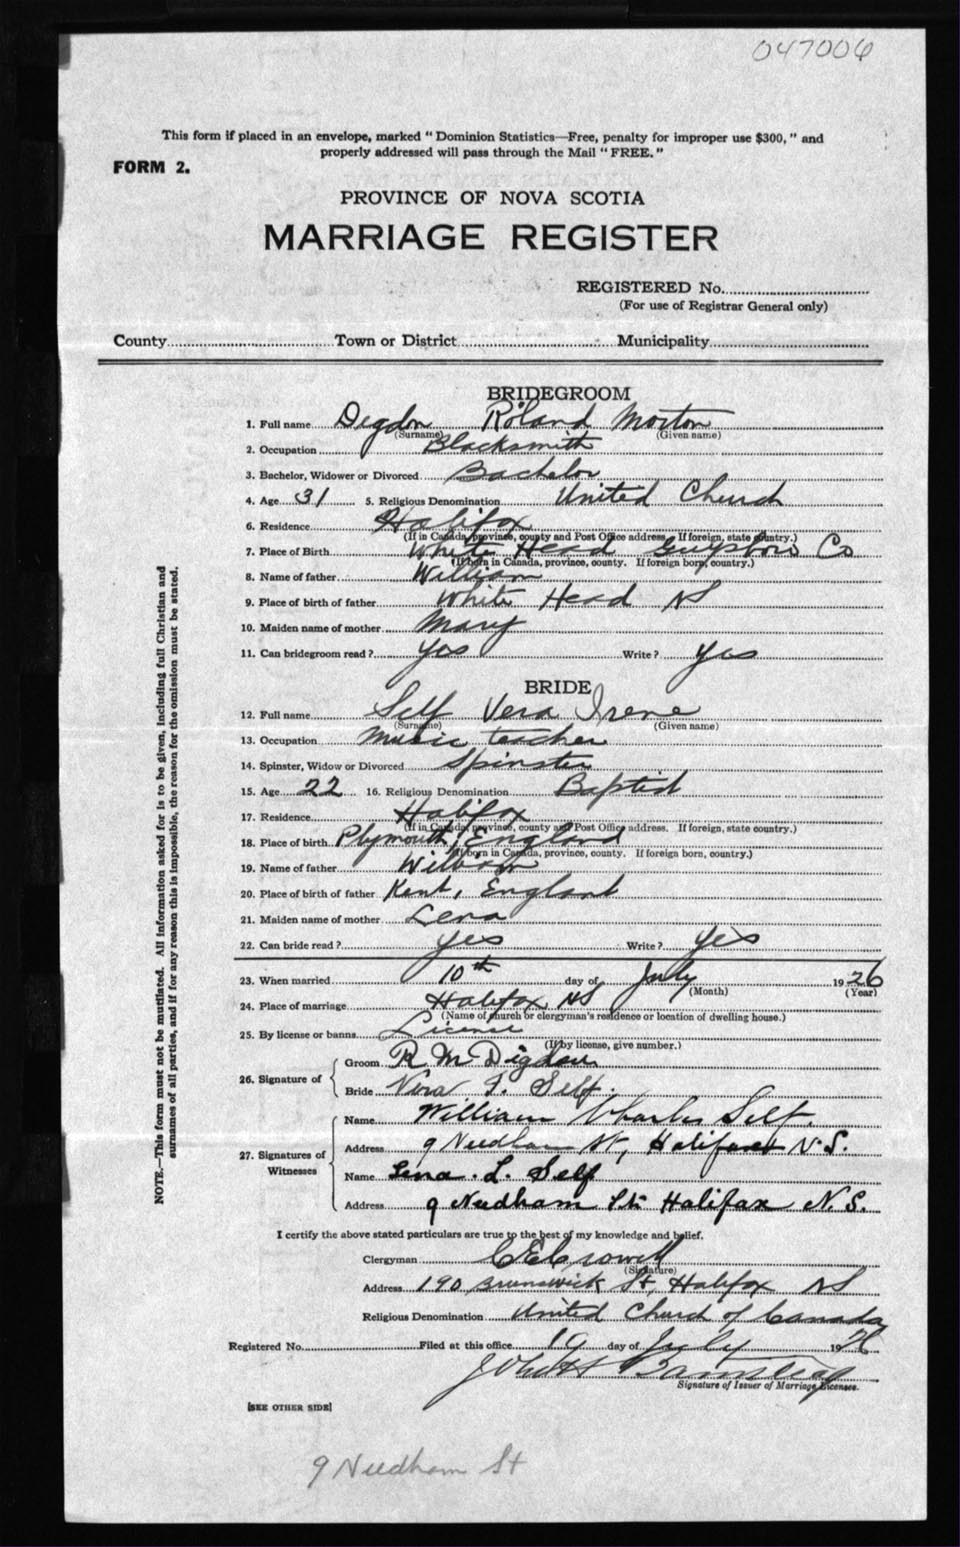 047006
This form if placed in an envelope, marked "Dominion Statistics—Free, penalty for improper use $300," and
properly addressed will pass through the Mail "FREE."
FORM 2.
PROVINCE OF NOVA SCOTIA
MARRIAGE REGISTER
REGISTERED No.
(For use of Registrar General only)
County Town or District Municipality
BRIDEGROOM
1. Full name Degdon Roland Morton
(Surname) (Given name)
2. Occupation Blacksmith
3. Bachelor, Widower or Divorced Bachelor
4. Age 31 5. Religious Denomination United Church
6. Residence Halifax
(If in Canada, province, county and Post Office address. If foreign, state country.)
7. Place of Birth White Head Guysboro Co
(If born in Canada, province, county. If foreign born, country.)
8. Name of father William
9. Place of birth of father White Head NS
10. Maiden name of mother Mary
11. Can bridegroom read? Yes Write? Yes
BRIDE
12. Full name Self Vera Irene
(Surname) (Given name)
13. Occupation Music teacher
14. Spinster, Widow or Divorced Spinster
15. Age 22 16. Religious Denomination Baptist
17. Residence Halifax
(If in Canada, province, county and Post Office address. If foreign, state country.)
18. Place of birth Plymouth, England
(If born in Canada, province, county. If foreign born, country.)
19. Name of father William
20. Place of birth of father Kent, England
21. Maiden name of mother Lena
22. Can bride read? Yes Write? Yes
23. When married 10th day of July 1926
(Month) (Year)
24. Place of marriage Halifax NS
(Name of church or clergyman's residence or location of dwelling house.)
25. By license or banns License
(If by license, give number.)
26. Signature of
Groom R M Digdon
Bride Vera I. Self.
27. Signatures of Witnesses
Name William Charles Self.
Address 9 Needham St, Halifax N.S.
Name Lena. L. Self
Address 9 Needham St. Halifax N.S.
I certify the above stated particulars are true to the best of my knowledge and belief.
Clergyman C E Crowell
(Signature)
Address 190 Brunswick St, Halifax NS
Religious Denomination United Church of Canada
Registered No. Filed at this office 19 day of July 1926
Signature of Issuer of Marriage Licenses.
[SEE OTHER SIDE]
9 Needham St
NOTE.—This form must not be mutilated. All information asked for is to be given, including full Christian and
surnames of all parties, and if for any reason this is impossible, the reason for the omission must be stated.